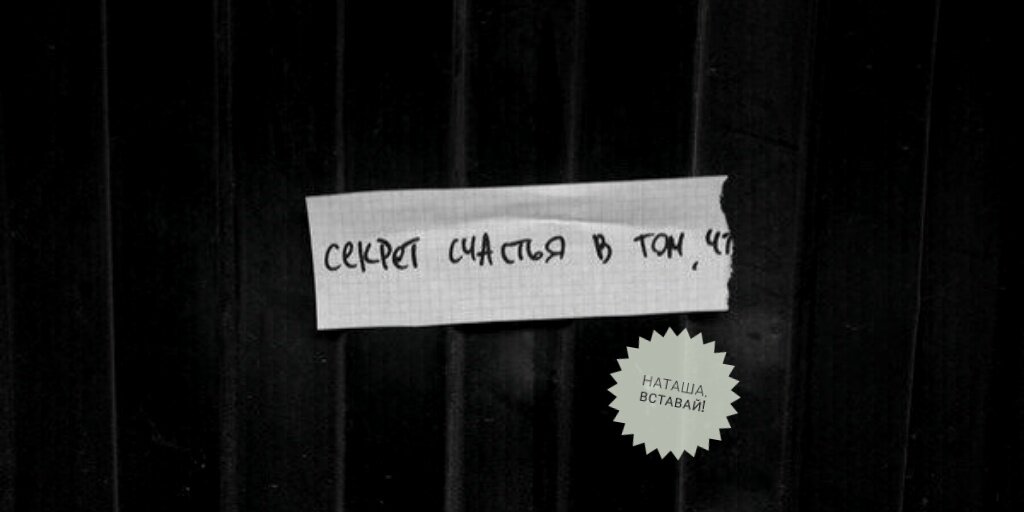 СЕКРЕТ СЧАСТЬЯ В ТОМ, ЧТ
НАТАША,
ВСТАВАЙ!